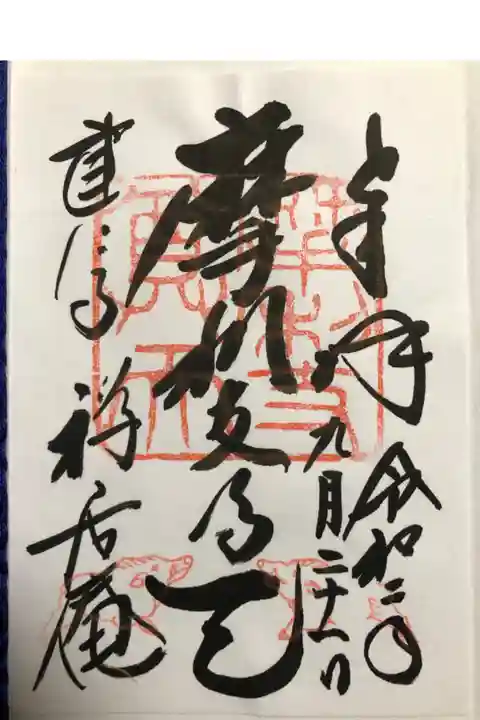 奉拝
令和二年
九月二十一日
摩利支尊天
建仁寺
禅居庵